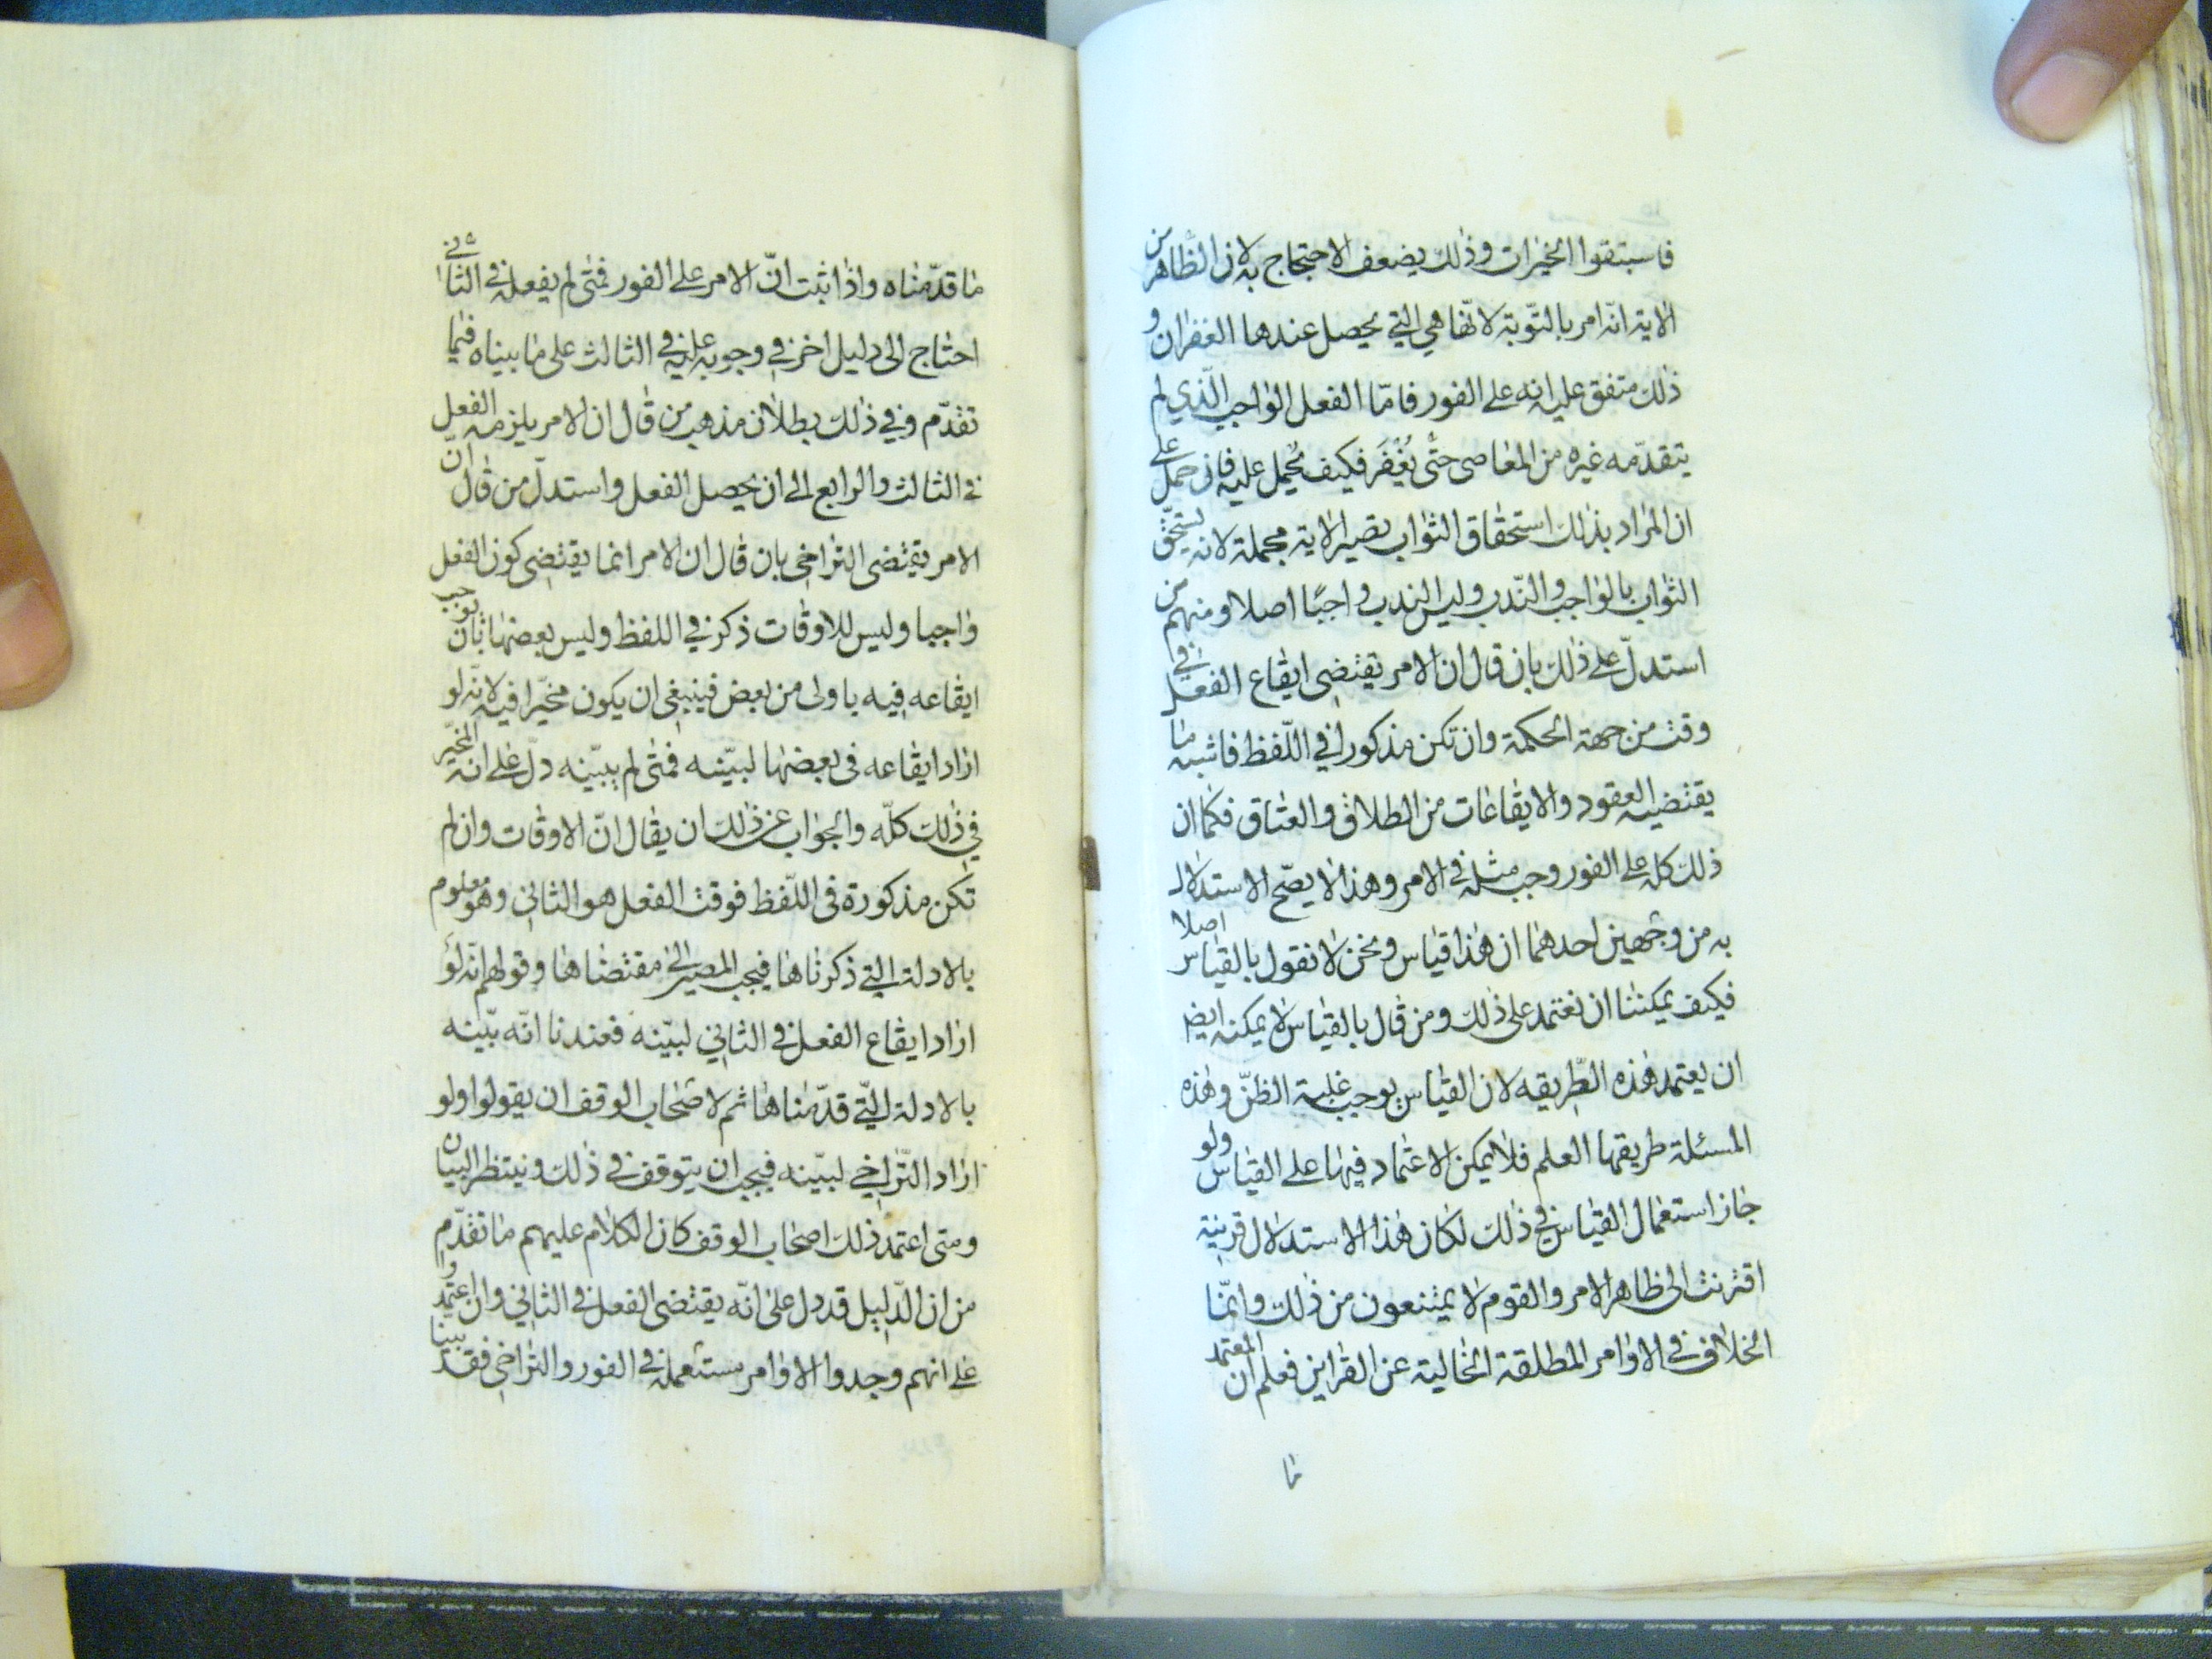 فاستبقوا الخيرات وذلك يضعف الاحتجاج به لان الظاهر من
الاية انه امر بالتوبة لانها هي التي يحصل عندها الغفران و
ذلك متفق عليه انه على الفور فامّا الفعل الواجب الّذي لم
يتقدّمه غيره من المعاصي حتّى يُغْفَرَ فكيف يُحمل عليه فان حمل على
ان المراد بذلك استحقاق الثواب تصير الاية مجملة لانه يستحقّ
الثواب بالواجب والنّدب وليس الندب واجبًا اصلا ومنهم من
استدلّ على ذلك بان قال ان الامر يقتضي ايقاع الفعل في
وقت من جهة الحكمة وان تكن مذكورا في اللّفظ فاشبه ما
يقتضيه العقود والايقاعات من الطلاق والعتاق فكما ان
ذلك كله على الفور وجب مثله في الامر وهذا لا يصّح الاستدلال
به من وجهين احدهما ان هذا قياس ونحن لا نقول بالقياس اصلا
فكيف يمكننا ان نعتمد على ذلك ومن قال بالقياس لا يمكنه ايض
ان يعتمد هذه الطّريقه لان القياس يوجب غلبة الظنّ وهذه
المسئلة طريقها العلم فلا يمكن الاعتماد فيها على القياس ولو
جاز استعمال القياس في ذلك لكان هذا الاستدلال قرينة
اقترنت الى ظاهر الامر والقوم لا يمتنعون من ذلك وانمّا
الخلاف في الاوامر المطلقة الخالية عن القراين فعلم ان المعتمد
ما
ما قدّمناه واذا ثبت انّ الامر على الفور فمتى لم يفعله في الثاني
احتاج الى دليل اخر في وجوبه عليه في الثالث على ما بيناه فيما
تقدّم وفي ذلك بطلان مذهب من قال ان الامر يلزمه الفعل
في الثالث والرابع الى ان يحصل الفعل واستدلّ من قال ان
الامر يقتضى التراخي بان قال ان الامر انما يقتضي كون الفعل
واجبا وليس للاوقات ذكر في اللفظ وليس بعضها بان يوجب
ايقاعه فيه باولى من بعض فينبغي ان يكون مخيّرا فيه لانّه لو
اراد ايقاعه فى بعضها لبيّنه فمتى لم يبيّنه دلّ على انه المخيّر
في ذلك كلّه والجواب عن ذلك ان يقال انّ الاوقات وان لم
تكن مذكورة فى اللّفظ فوقت الفعل هو الثاني وهو معلوم
بالادلة التي ذكرناها فيجب المصير الى مقتضاها وقولهم انّه لو
اراد ايقاع الفعل في الثاني لبيّنه فعندنا انّه بيّنه
بالادلة الّتي قدّمناها ثم لاصحاب الوقف ان يقولوا ولو
اراد التّراخي لبيّنه فيجب ان يتوقف في ذلك وينتظر البيان
ومتى اعتمد ذلك اصحاب الوقف كان الكلام عليهم ما تقدّم
من ان الدّليل قد دل على انّه يقتضى الفعل في الثاني وان اعتمدوا
على انهم وجدوا الاوامر مستعملة في الفور والتراخي فقد بينا